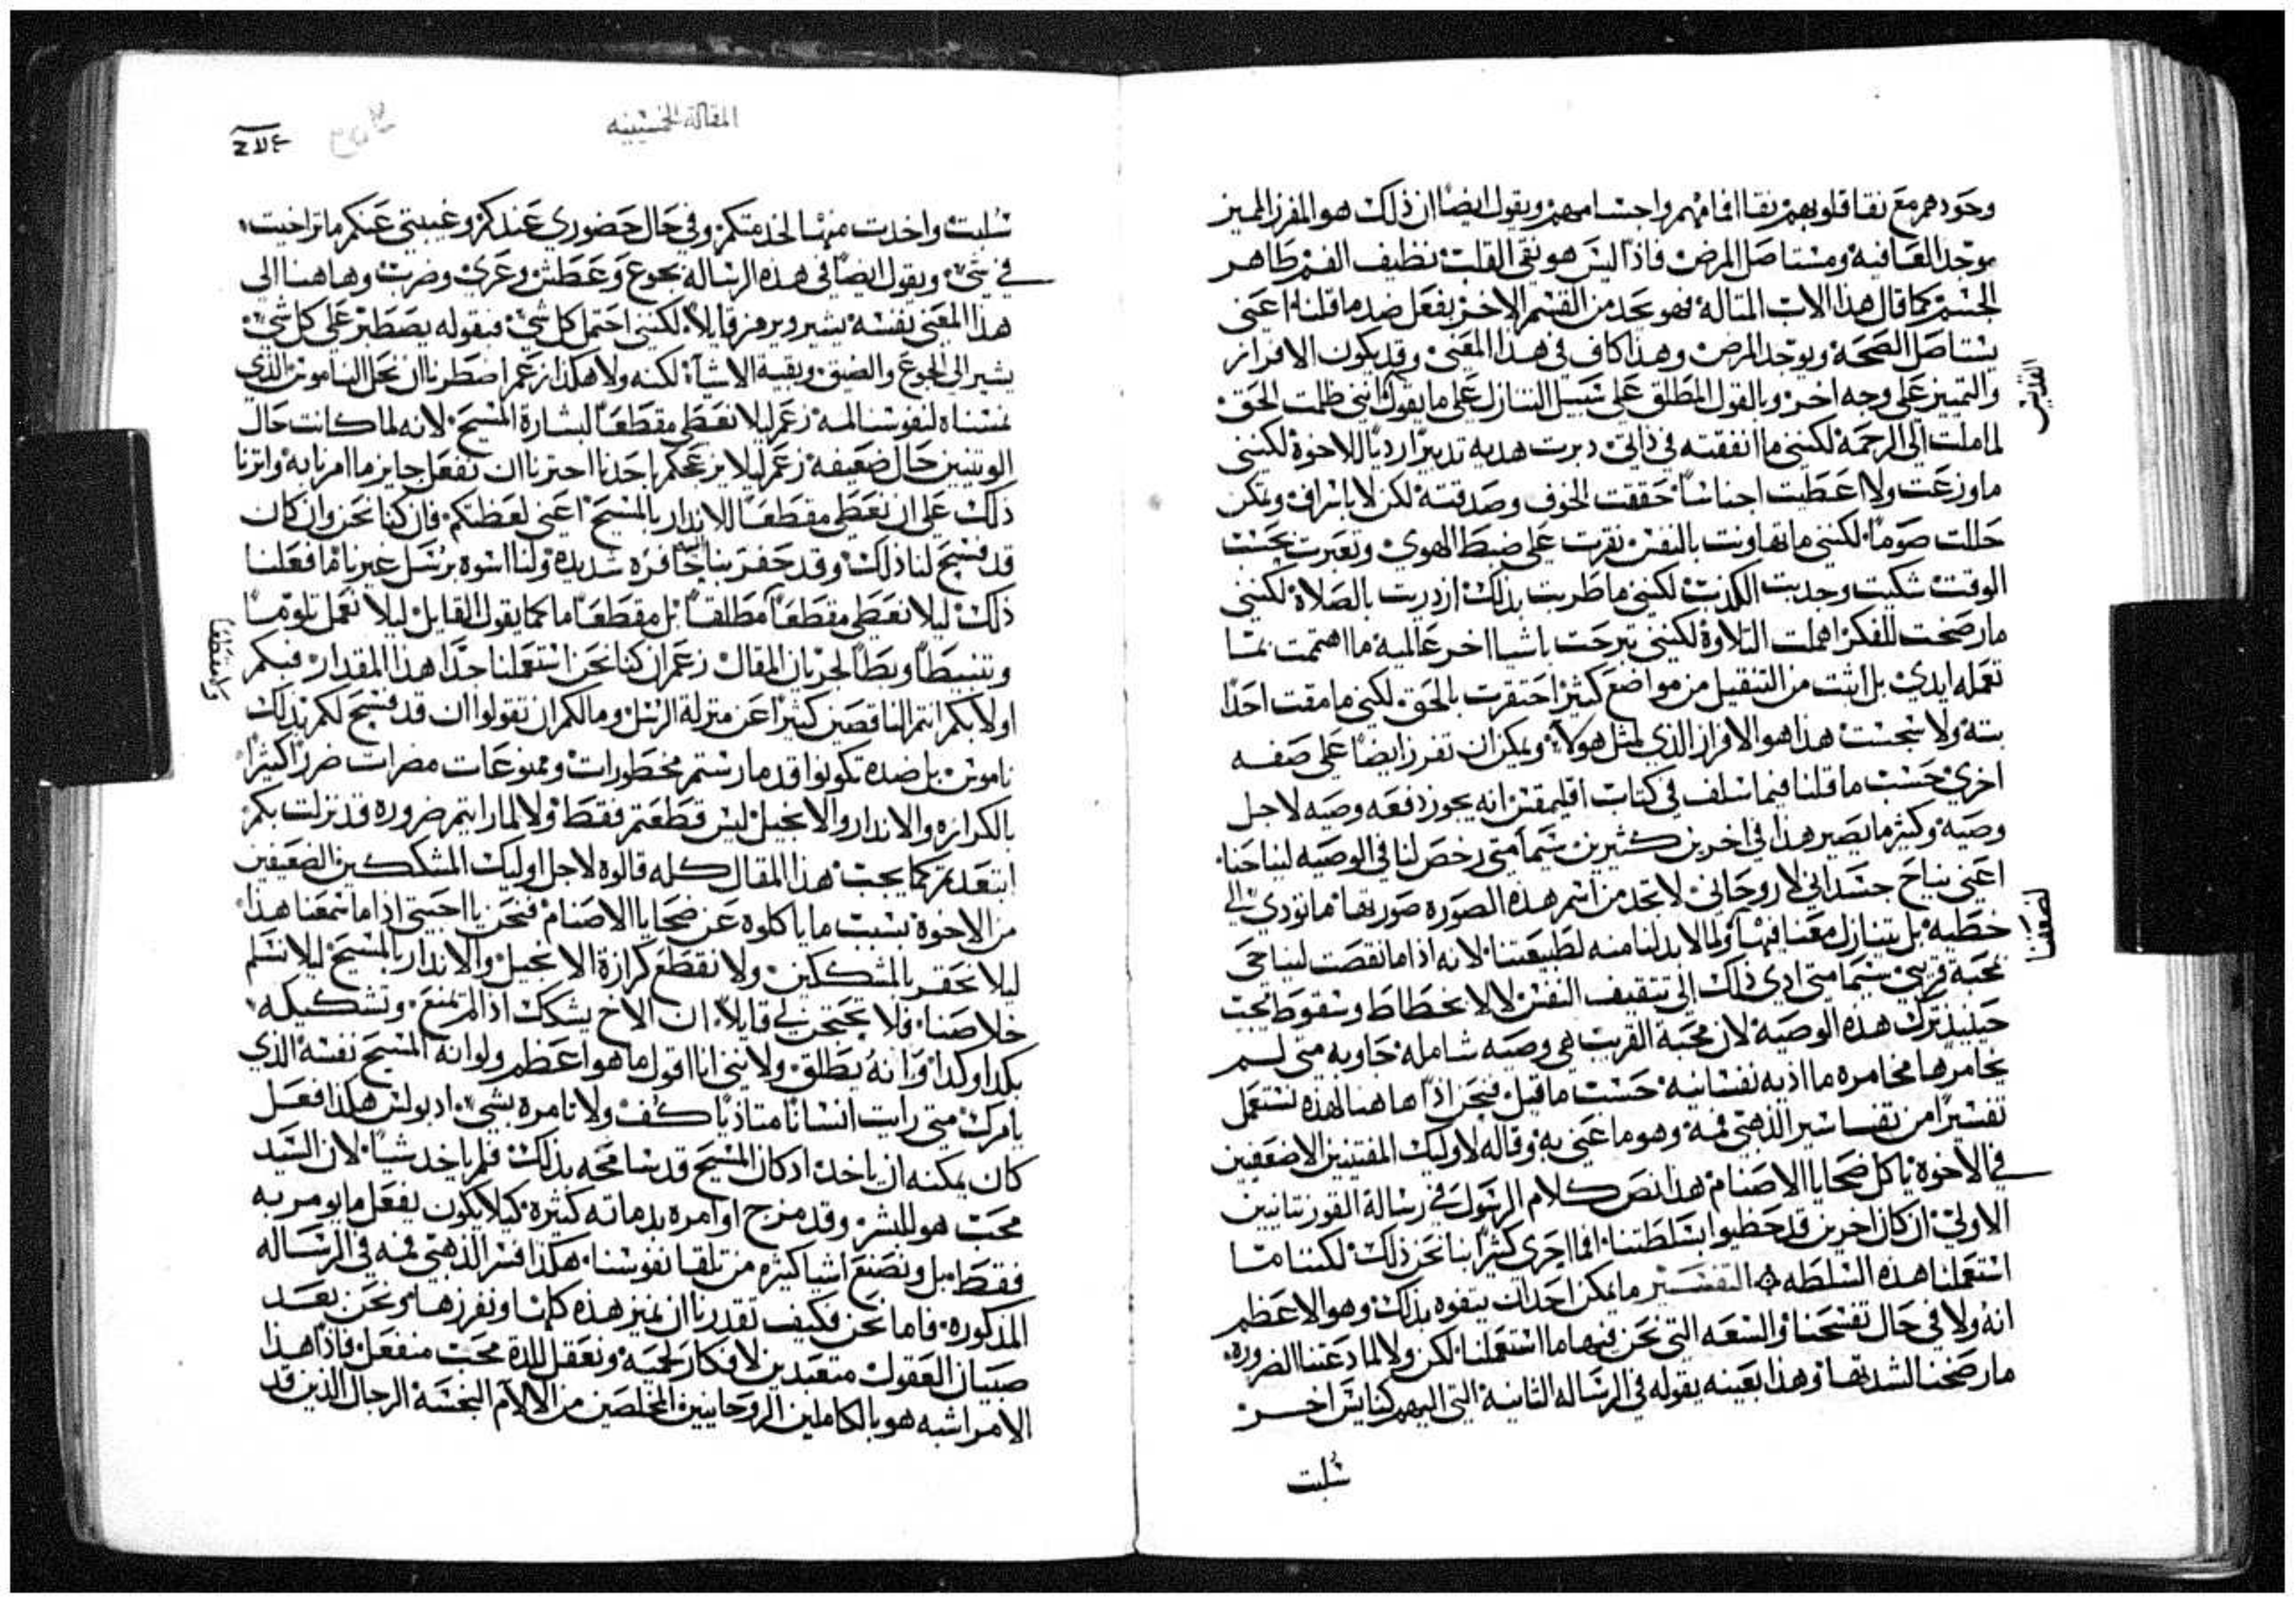 وجودهم مع نقا قلوبهم نقا افمامهم واجسامهم ويقول ايضا ان ذلك هو المفرز المميز
موجد العافيه ومستاصل المرض فاذا ليس هو نقي القلب نظيف الفم طاهر
الجسم كما قال هذا الاب المتاله فهو نجد من القسم الاخر يفعل ضد ما قلناه اعني
يستاصل الصحه ويوجد المرض وهذا كاف في هذا المعني وقد يكون الافراز
والتمييز على وجه اخر وبالقول المطلق على سبيل التنازل على ما يقول انني ظلمت الحق
القديس
لما ملت الى الرحمة لكنني ما انفقته في ذاتي دبرت هديه تدبيرًا رديًا للاخوة لكنني
ما وزعت ولا اعطيت اجناسًا خففت الخوف وصدفته لكن لا باسراف ويمكن
حللت صومًا لكنني ما تهاونت بالنفس نقرت على ضبط الهوى وتعبرت بحسب
الوقت شكيت وجذبت الكذب لكنني ما طربت بذلك ازدريت بالصلاة لكنني
ما رضخت للفكر اهملت التلاوة لكنني تبرحت باشيا اخر عالمية ما اهتممت بما
تعمله ايدي بل ابثت من التنقيل من مواضع كثيره احتقرت بالحق لكنني ما مقت احدًا
بته ولا سجست هذا هو الافراز الذي لمثل هولاء ويمكن ان تفرز ايضًا على صفه
اخرى حسب ما قلنا فيما سلف في كتاب اقليمقس انه يجوز دفعه وصيه لاجل
وصيه وكثير ما يصير هذا في اخرين كثيرين سيما متى رخص لنا في الوصيه لنياحنا
اعني بنياح جسداني لا روحاني لا تجد من اسم هذه الصوره صورتها ما تودي الى
خطيه بل يتنازل معنا فيها ولما لا بد لنا منه لطبيعتنا لانه اذا ما نقصت لنياحي
محبة قريبي سيما متى ادى ذلك الى تثقيف النفس لا لانحطاط وسقوط تجب
حينيذ ترك هذه الوصيه لان محبة القريب هي وصيه شامله حاويه متى لم
يخامرها مخامره ما اذيه نفسانيه حسب ما قيل فنحن اذًا هاهنا لهذه نستعمل
تفسيرًا من تفاسير الذهبي فمه وهو ما عني به وقاله لاوليك المقتنيين الاضعفين
في الاخوة باكل ضحايا الاصنام هذا نص كلام الرسول في رسالة القورنتانيين
الاولى ان كان اخرين قد حظيوا بسلطتنا افما احرى كثيرًا بنا نحن ذلك لكننا ما
استعملنا هذه السلطه التفسير ما يمكن احدًا ان يتفوه بذلك وهو الاعظم
انه ولا في حال تفسحنا والسعه التي نحن فيها ما استعملنا لكن ولا لما دعتنا الضروره
ما رضخنا لشدتها وهذا بعينه يقوله في الرساله الثانية التي اليهم كنايس اخر
سلبت
المقالة الخمسينيه
سلبت واخدت منها لخدمتكم وفي حال حضوري عندكم وغيبتي عنكم ما تراخيت
في شي ويقول ايضًا في هذه الرساله بجوع وعطش وعري وضرب وهاهنا الى
هذا المعني نفسه يشير ويرمز قايلًا لكنني احتمل كل شي فبقوله يصطبر على كل شي
يشير الى الجوع والضيق وبقية الاشيا لكنه ولا هكذا زعم اضطرنا ان نحل الناموس الذي
سنناه لنفوسنا لمه زعم ليلا نعطي مقطعًا لبشارة المسيح لانه لما كانت حال
الوثنيين حال ضعيفه زعم ليلا يزعجكم باحدنا احترنا ان نفعل جايز ما امرنا به واثرنا
ذلك على ان نعطي مقطعًا للاندار بالمسيح اعني لعظتكم فان كنا نحن وان كان
قد فسح لنا ذلك وقد حفزتنا حافزه شديده ولنا اسوه برسل غيرنا ما فعلنا
ذلك ليلا نعطي مقطعًا مطلقًا بل مقطعًا ما كما يقول القايل ليلا نعمل تلومًا
وتنبيطًا وبطًا لجريان المقال زعم ان كنا نحن استعملنا جدًا هذا المقدار فبكم
اولا بكم انتم الناقصين كثيرًا عن منزلة الرسل وما لكم ان تقولوا ان قد فسح لكم بذلك
ناموس بل ضده تكونوا قد مارستم محظورات وممنوعات مضرات ضررًا كثيرًا
بالكرازه والاندار والانجيل ليس قطعتم فقط ولا لما رايتم ضروره قد نزلت بكم
ابتعدتم كما يجب هذا المقال كله قالوه لاجل اوليك المشككين الضعيفين
من الاخوة بسبب ما ياكلوه عن ضحايا الاصنام فنحن يا احبتي اذا ما سمعنا هذا
ليلا نحقر بالمشككين ولا نقطع كرازة الانجيل والاندار بالمسيح ليلا نسلم
خلاصنا فلا تحتجن لي قايلًا ان الاخ يشكك اذا لم تمنع وتشكيكه
بكدا وكدا وانه يطلق ولانني انا اقول ما هو اعظم ولو انه المسيح نفسه الذي
يامرك متى رايت انسانًا متاذيًا كف ولا تامره بشي اد بولس هكذا فعل
كان يمكنه ان ياخد اد كان المسيح قد سامحه بذلك فلم ياخد شيا لان السيد
محب هو للبشر وقد مزج اوامره بدماته كثيره كيلا يكون يفعل ما يومر به
فقط بل ونصنع اشيا كثيره من تلقا نفوسنا هكذا فسر الذهبي فمه في الرساله
المذكوره فاما نحن فكيف تقدرنا ان نميز هذه كلها ونفرزها ونحن بعد
صبيان العقول متعبدين لافكار لحميه ونعقل للدة محب منفعل فاذًا هذا
الامر اشبه هو بالكاملين الروحانيين المخلصين من الالام النجسه الرجال الذين قد